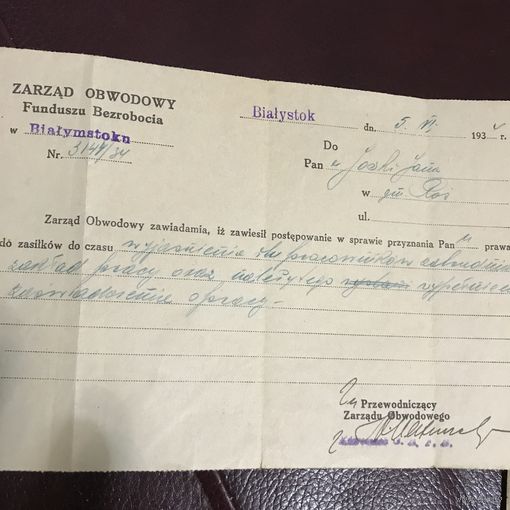 ZARZĄD OBWODOWY
Funduszu Bezrobocia
w Białymstoku
Nr. 3144/34
Białystok dn. 5. VI. 1934 r.
Do
Pan a Joski Jana
w gm Roś
ul.
Zarząd Obwodowy zawiadamia, iż zawiesił postępowanie w sprawie przyznania Pan prawa
do zasiłków do czasu wyjaśnienia ilu pracowników zatrudnia
zakład pracy oraz należytego wypełnienia
zaświadczenia o pracy.
Przewodniczący
Zarządu Obwodowego